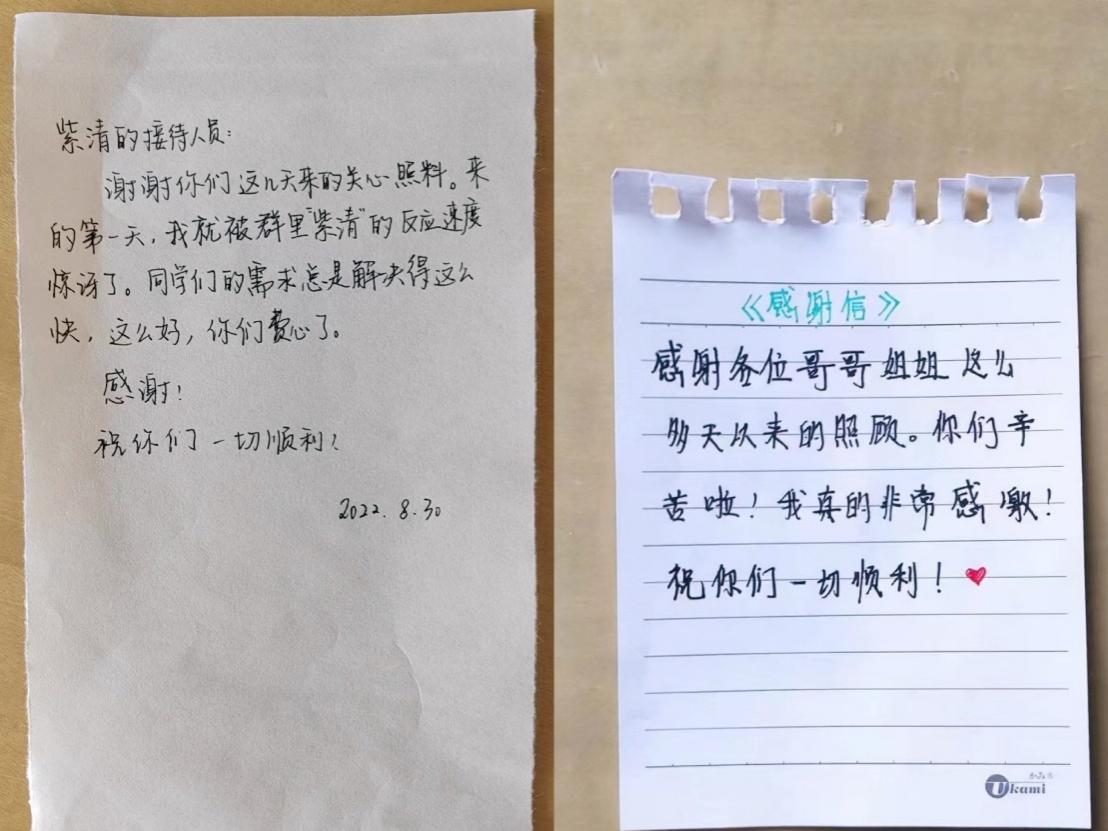 紫清的接待人员：
谢谢你们这几天来的关心照料。来
的第一天，我就被群里"紫清"的反应速度
惊讶了。同学们的需求总是解决得这么
快，这么好，你们费心了。
感谢！
祝你们一切顺利！
2022.8.30
《感谢信》
感谢各位哥哥姐姐这么
多天以来的照顾。你们辛
苦啦！我真的非常感激！
祝你们一切顺利！
かみ
Ukami